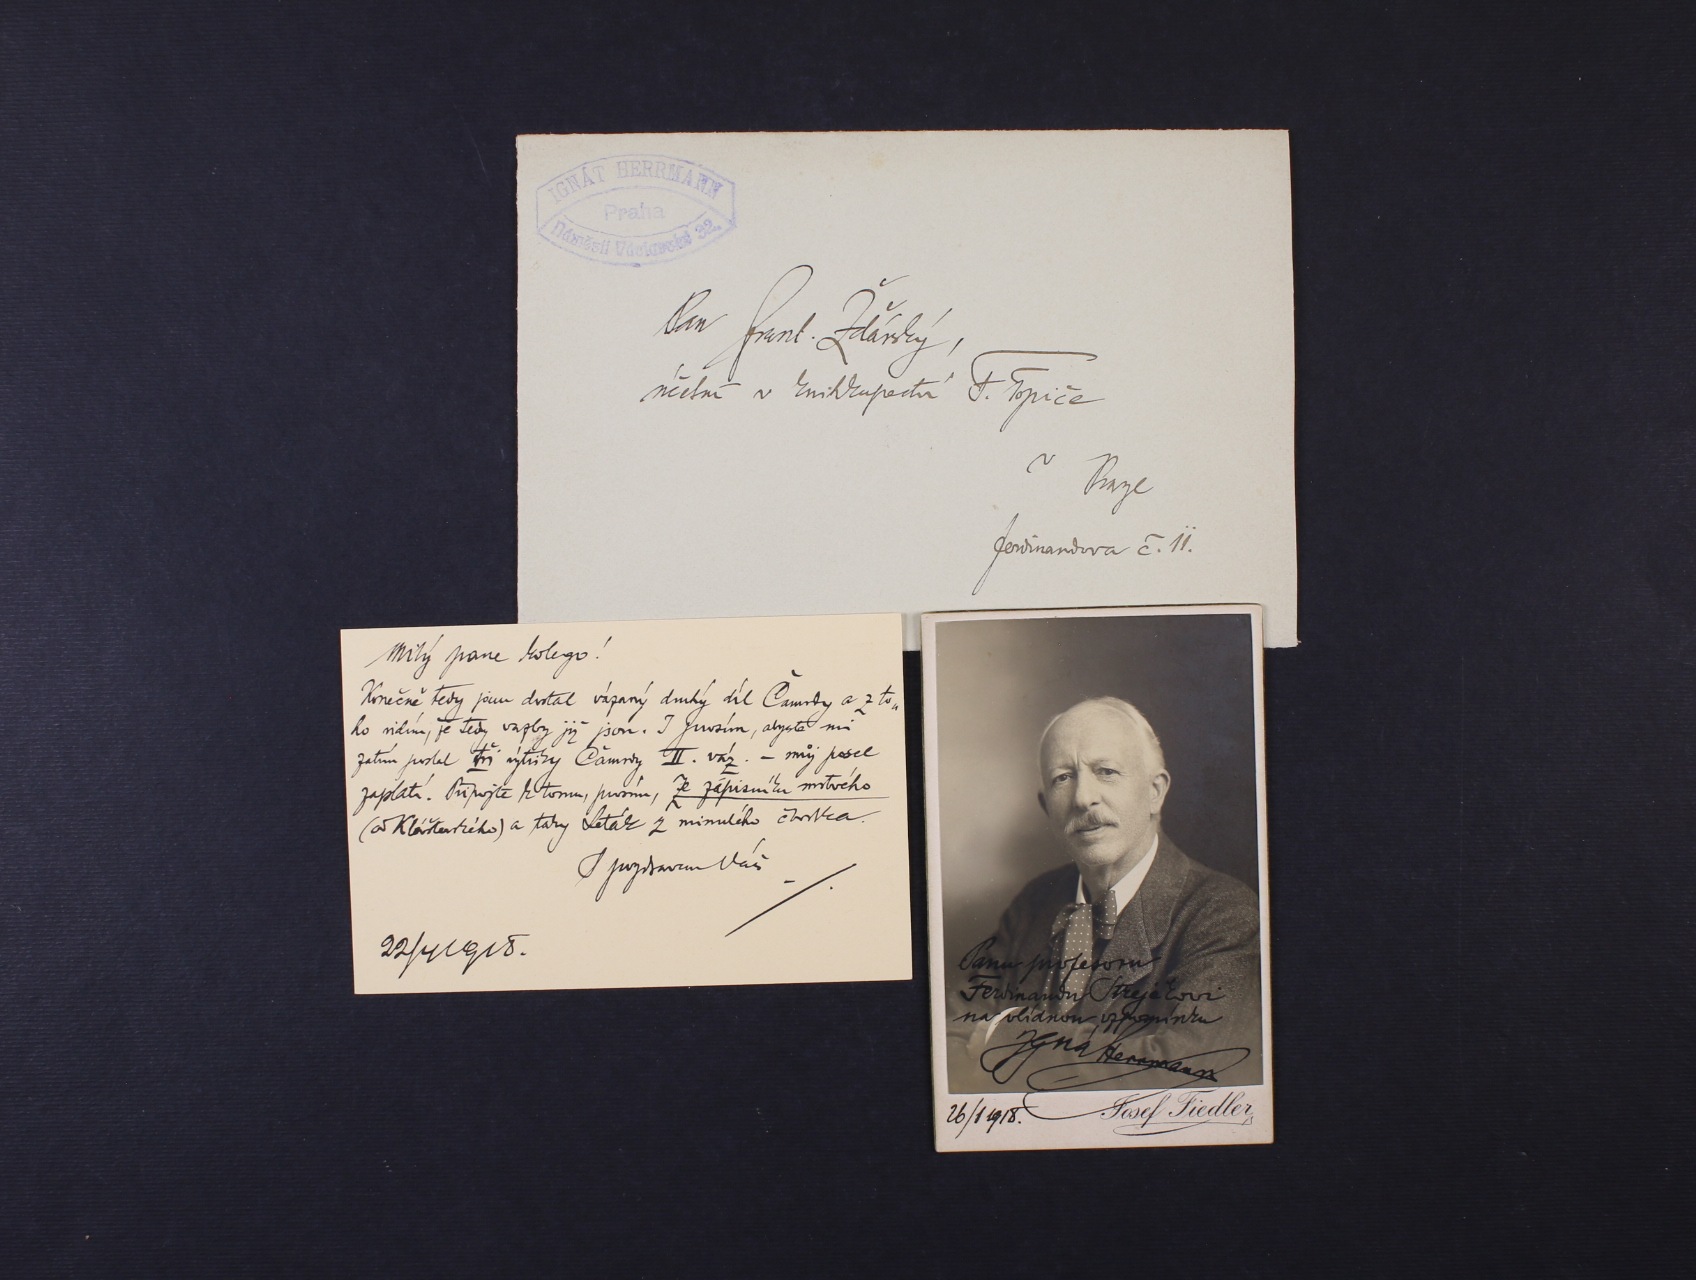 IGNÁT HERRMANN
Praha
Náměstí Václavské 32.
Pan Frant. Žďárský,
účetní v knihkupectví F. Topiče
v Praze
Ferdinandova č. 11.
Milý pane kolego!
Konečně tedy jsem dostal vázaný druhý díl Čamrdy a z to„
ho vidím, že tedy vazby již jsou. I prosím, abyste mi
zatím poslal tři výtisky Čamrdy II. váz. – můj posel
zaplatí. Připojte k tomu, prosím, Ze zápisníku mrtvého
(od Klášterského) a taky Leták z minulého čtvrtka.
S pozdravem Váš
1918.
Panu profesoru
Ferdinandu Strejčkovi
na vlídnou vzpomínku
Ignát Herrmann
26/1 1918.
Josef Fiedler